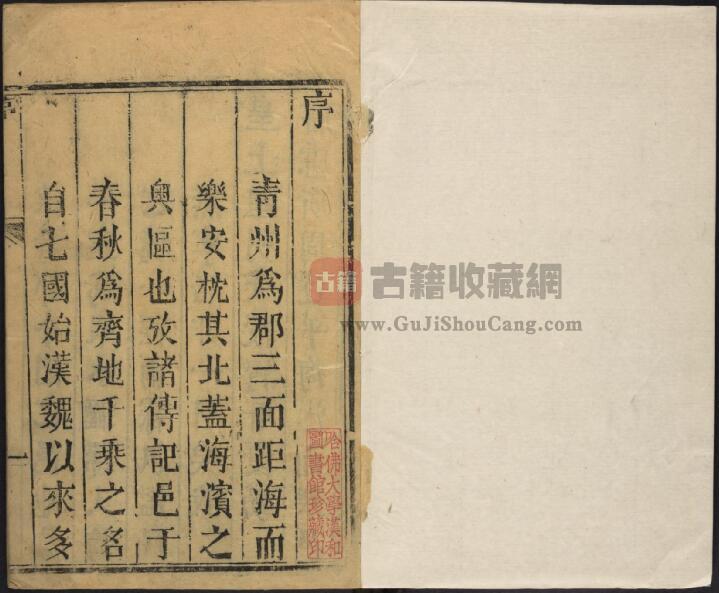 序
青州爲郡三面距海而
樂安枕其北蓋海濱之
奥區也攷諸傳記邑于
春秋爲齊地千乗之名
自七國始漢魏以來多
序
一
哈佛大學漢和
圖書館珍藏印
古籍
古籍收藏網
www.GuJiShouCang.com